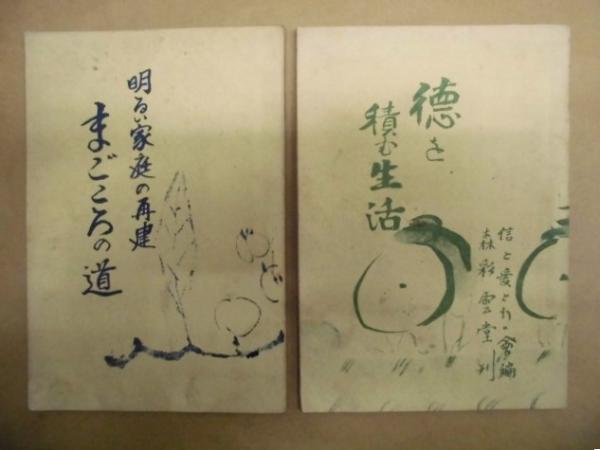 明るい家庭の再建
まごころの道
徳を
積む生活
信と愛と行の會編
森彩雲堂刊